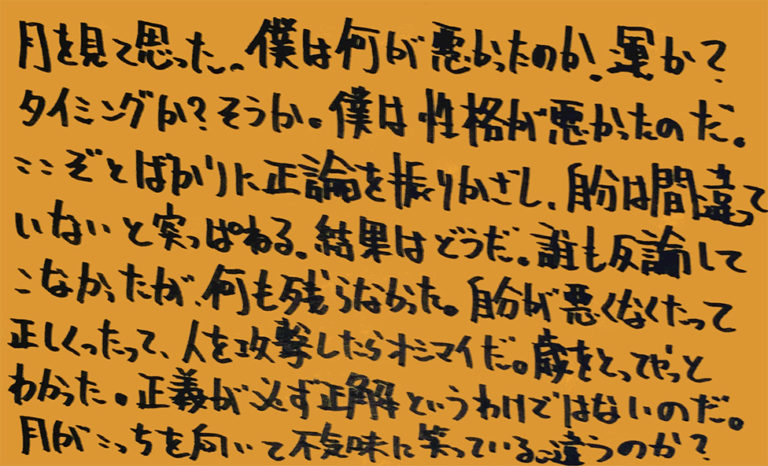 月を見て思った。僕は何が悪かったのか。運か？
タイミングか？そうか。僕は性格が悪かったのだ。
ここぞとばかりに正論を振りかざし、自分は間違って
いないと突っぱねる。結果はどうだ。誰も反論して
こなかったが、何も残らなかった。自分が悪くなくたって
正しくったって、人を攻撃したらオシマイだ。歳をとってやっと
わかった。正義が必ず正解というわけではないのだ。
月がこっちを向いて不気味に笑っている。違うのか？